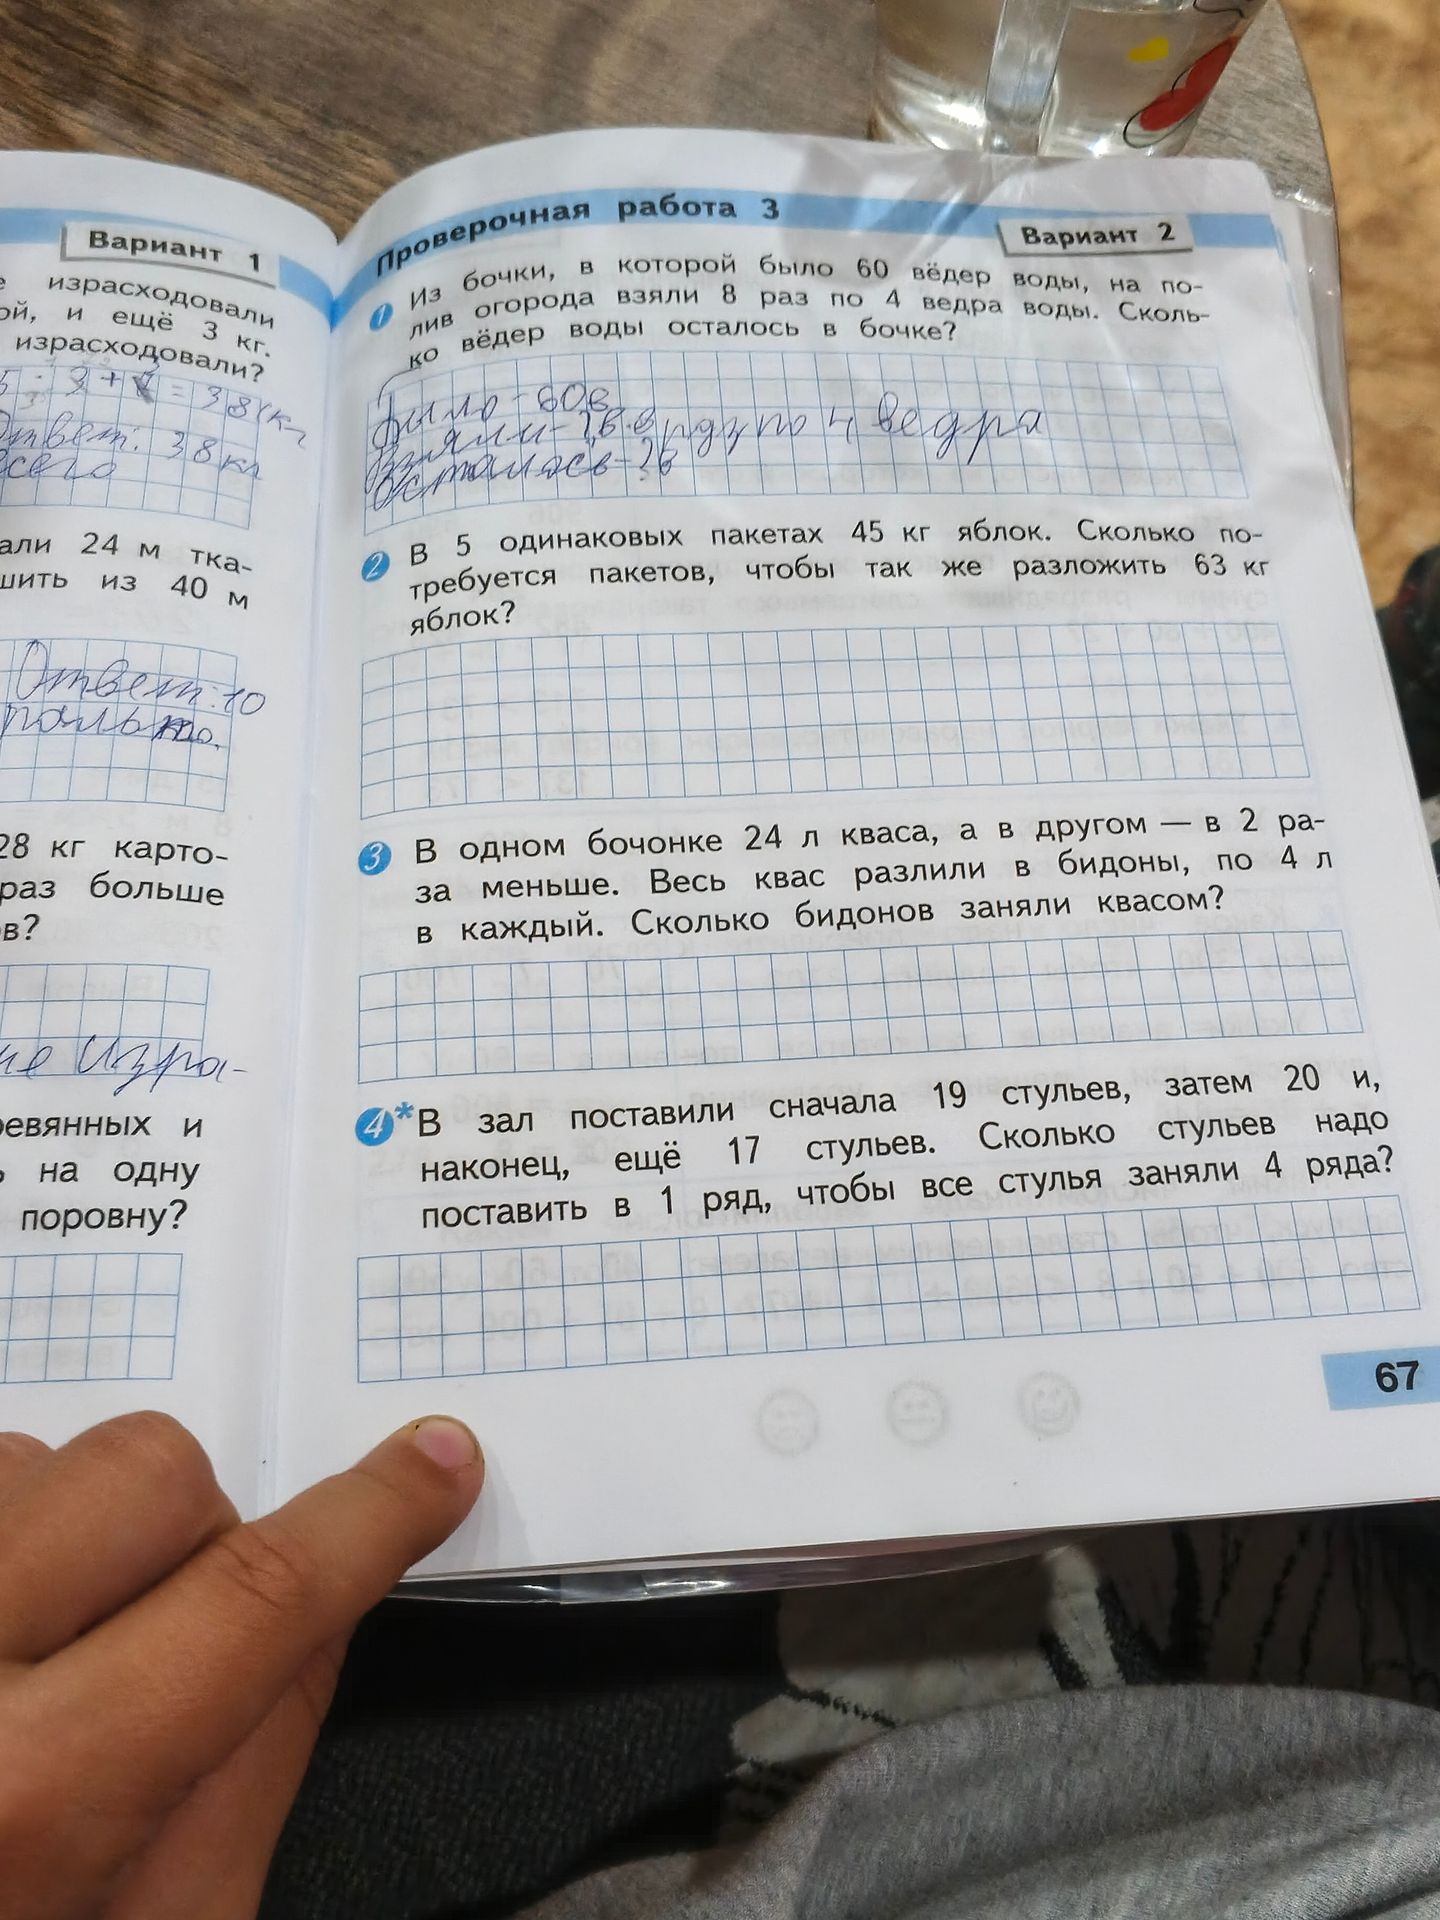 Вариант 1
израсходовали
ой, и ещё 3 кг.
израсходовали?
= 38 (кг
Ответ: 38 кг
всего
али 24 м тка-
шить из 40 м
Ответ: 10
пальто.
28 кг карто-
раз больше
в?
ие изра-
ревянных и
на одну
поровну?
Проверочная работа 3
Вариант 2
1 Из бочки, в которой было 60 вёдер воды, на по-
лив огорода взяли 8 раз по 4 ведра воды. Сколь-
ко вёдер воды осталось в бочке?
Было - 60в
Взяли - ?в. по 4 ведра
Осталось - ?в
2 В 5 одинаковых пакетах 45 кг яблок. Сколько по-
требуется пакетов, чтобы так же разложить 63 кг
яблок?
3 В одном бочонке 24 л кваса, а в другом — в 2 ра-
за меньше. Весь квас разлили в бидоны, по 4 л
в каждый. Сколько бидонов заняли квасом?
4* В зал поставили сначала 19 стульев, затем 20 и,
наконец, ещё 17 стульев. Сколько стульев надо
поставить в 1 ряд, чтобы все стулья заняли 4 ряда?
67